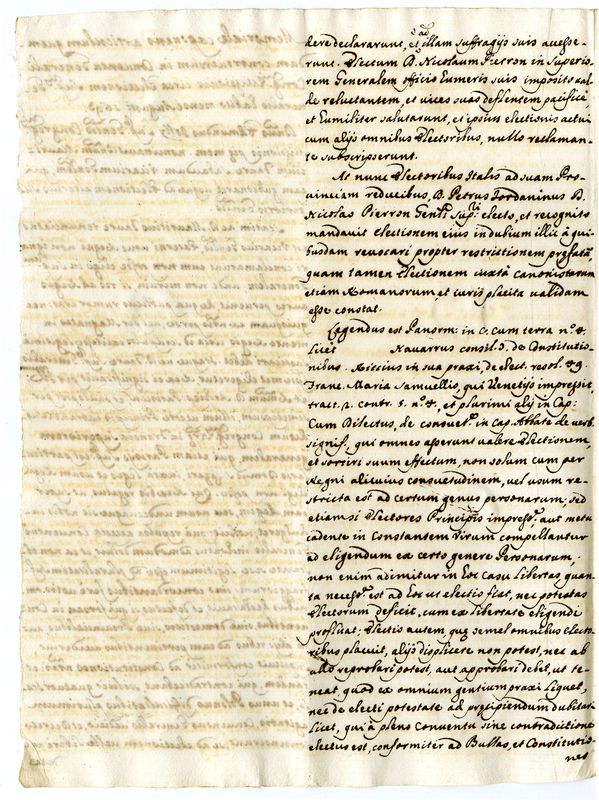 ad
dere declararunt, et illam suffragijs suis accesse-
runt. Electum B. Nicolaum Pierron in Superio-
rem Generalem officio humeris suis imposito val-
de reluctantem, et vices suas deflentem pacificè,
et humiliter salutarunt, et ipsius electionis actui
cum alijs omnibus Electoribus, nullo reclaman-
te subscripserunt.
At nunc Electoribus Italis ad suam Pro-
vinciam reducibus, B. Petrus Jordaninus B.
Nicolao Pierron Genli Supri electo, et recognito
mandavit electionem eius in dubium illic à qui-
busdam revocari propter restrictionem prefatā,
quam tamen Electionem iuxtà canonistarum
etiam Romanorum et iuris placita validam
esse constat.
Legendus est Panorm: in C. Cum terra nº 8.
licet Navarrus consil. 3. de Constitutio-
nibus. Riccius in sua praxi, de elect. resol. 89.
Franc. Maria Samuellio, qui Venetijs impressit,
tract. 2. contr. 5. nº 8., et plurimi alij in Cap:
Cum Dilectus, de consuet. in cap. Abbate de verb.
signif., qui omnes asserunt valere Electionem,
et sortiri suum effectum, non solum cum per
Regni alicuius consuetudinem, vel usum re-
stricta est ad certum genus personarum; sed
etiamsi Electores Principis impress. aut metu
cadente in Constantem Virum compellantur
ad eligendum ex certo genere Personarum,
non enim adimitur in hoc casu libertas, quan-
ta necess. est ad hoc ut electio fiat, nec potestas
Electorum deficit, cum ex libertate eligendi
profluat; Electio autem, quę semel omnibus electo-
ribus placuit, alijs displicere non potest, nec ab
ullo reprobari potest, aut approbari debet, ut te-
neat. quod ex omnium gentium praxi liquet,
nec de electi potestate ad pręcipiendum dubitari
licet, qui à pleno Conventu sine contradictione
electus est, conformiter ad Bullas, et Constitutio-
nes